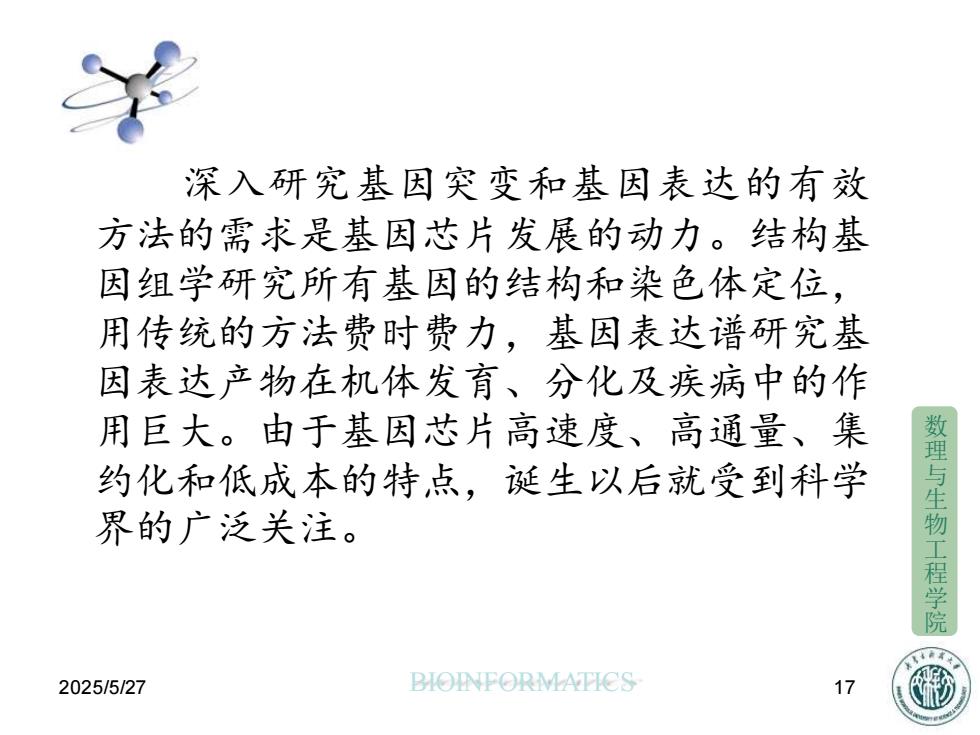 深入研究基因突变和基因表达的有效
方法的需求是基因芯片发展的动力。结构基
因组学研究所有基因的结构和染色体定位，
用传统的方法费时费力，基因表达谱研究基
因表达产物在机体发育、分化及疾病中的作
用巨大。由于基因芯片高速度、高通量、集
约化和低成本的特点，诞生以后就受到科学
界的广泛关注。
数理与生物工程学院
2025/5/27
BIOINFORMATICS
17